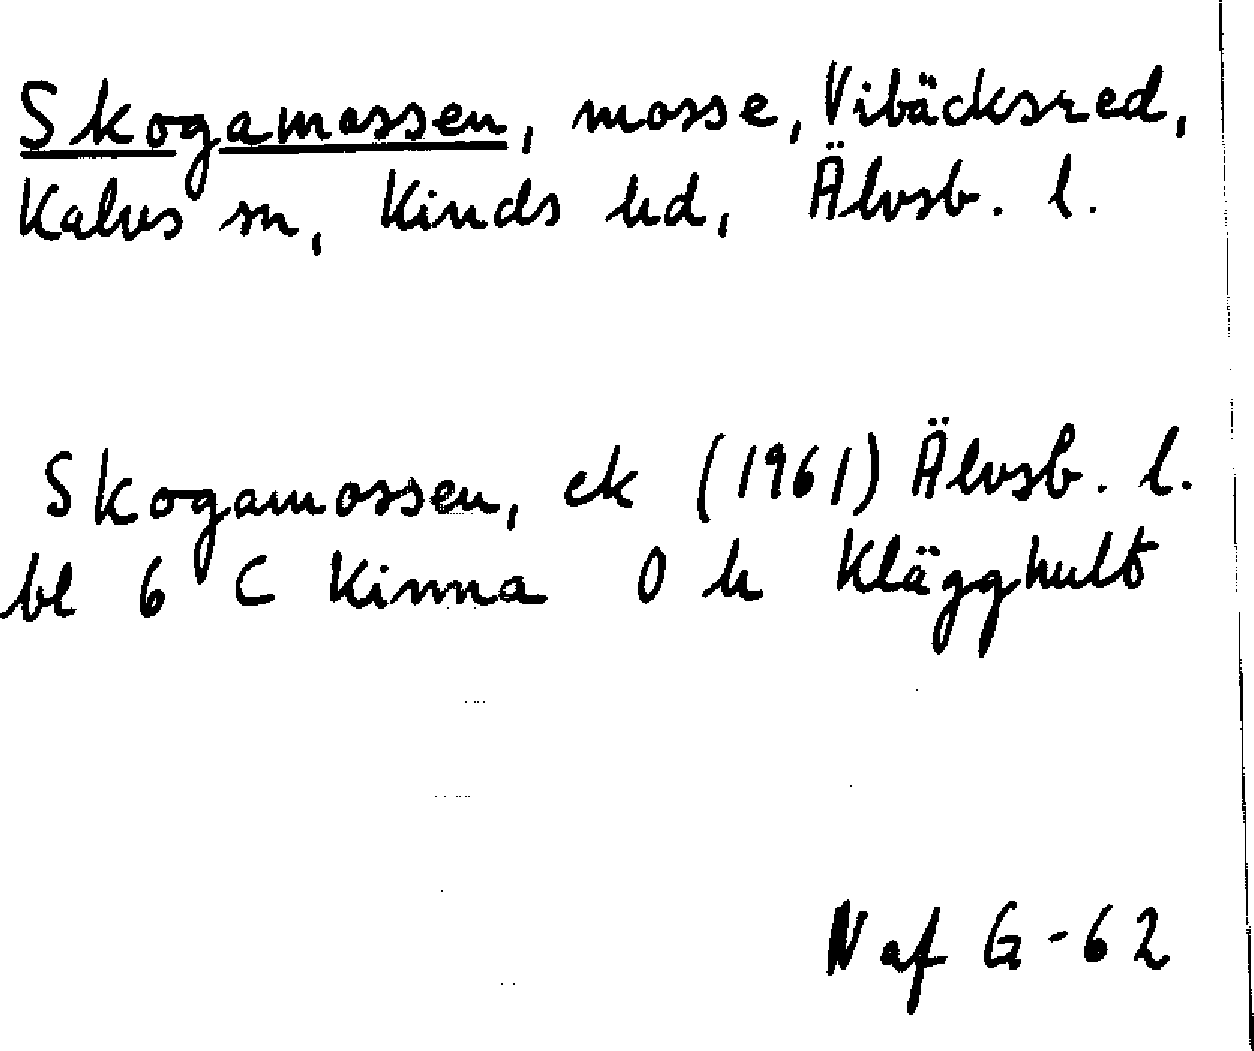 Skogamossen, mosse, Vibäcksred,
Kalvs sn, Kinds hd, Älvsb. l.
Skogamossen, ek (1961) Älvsb. l.
bl 6 C Kinna O h Klägghult
N af G-62